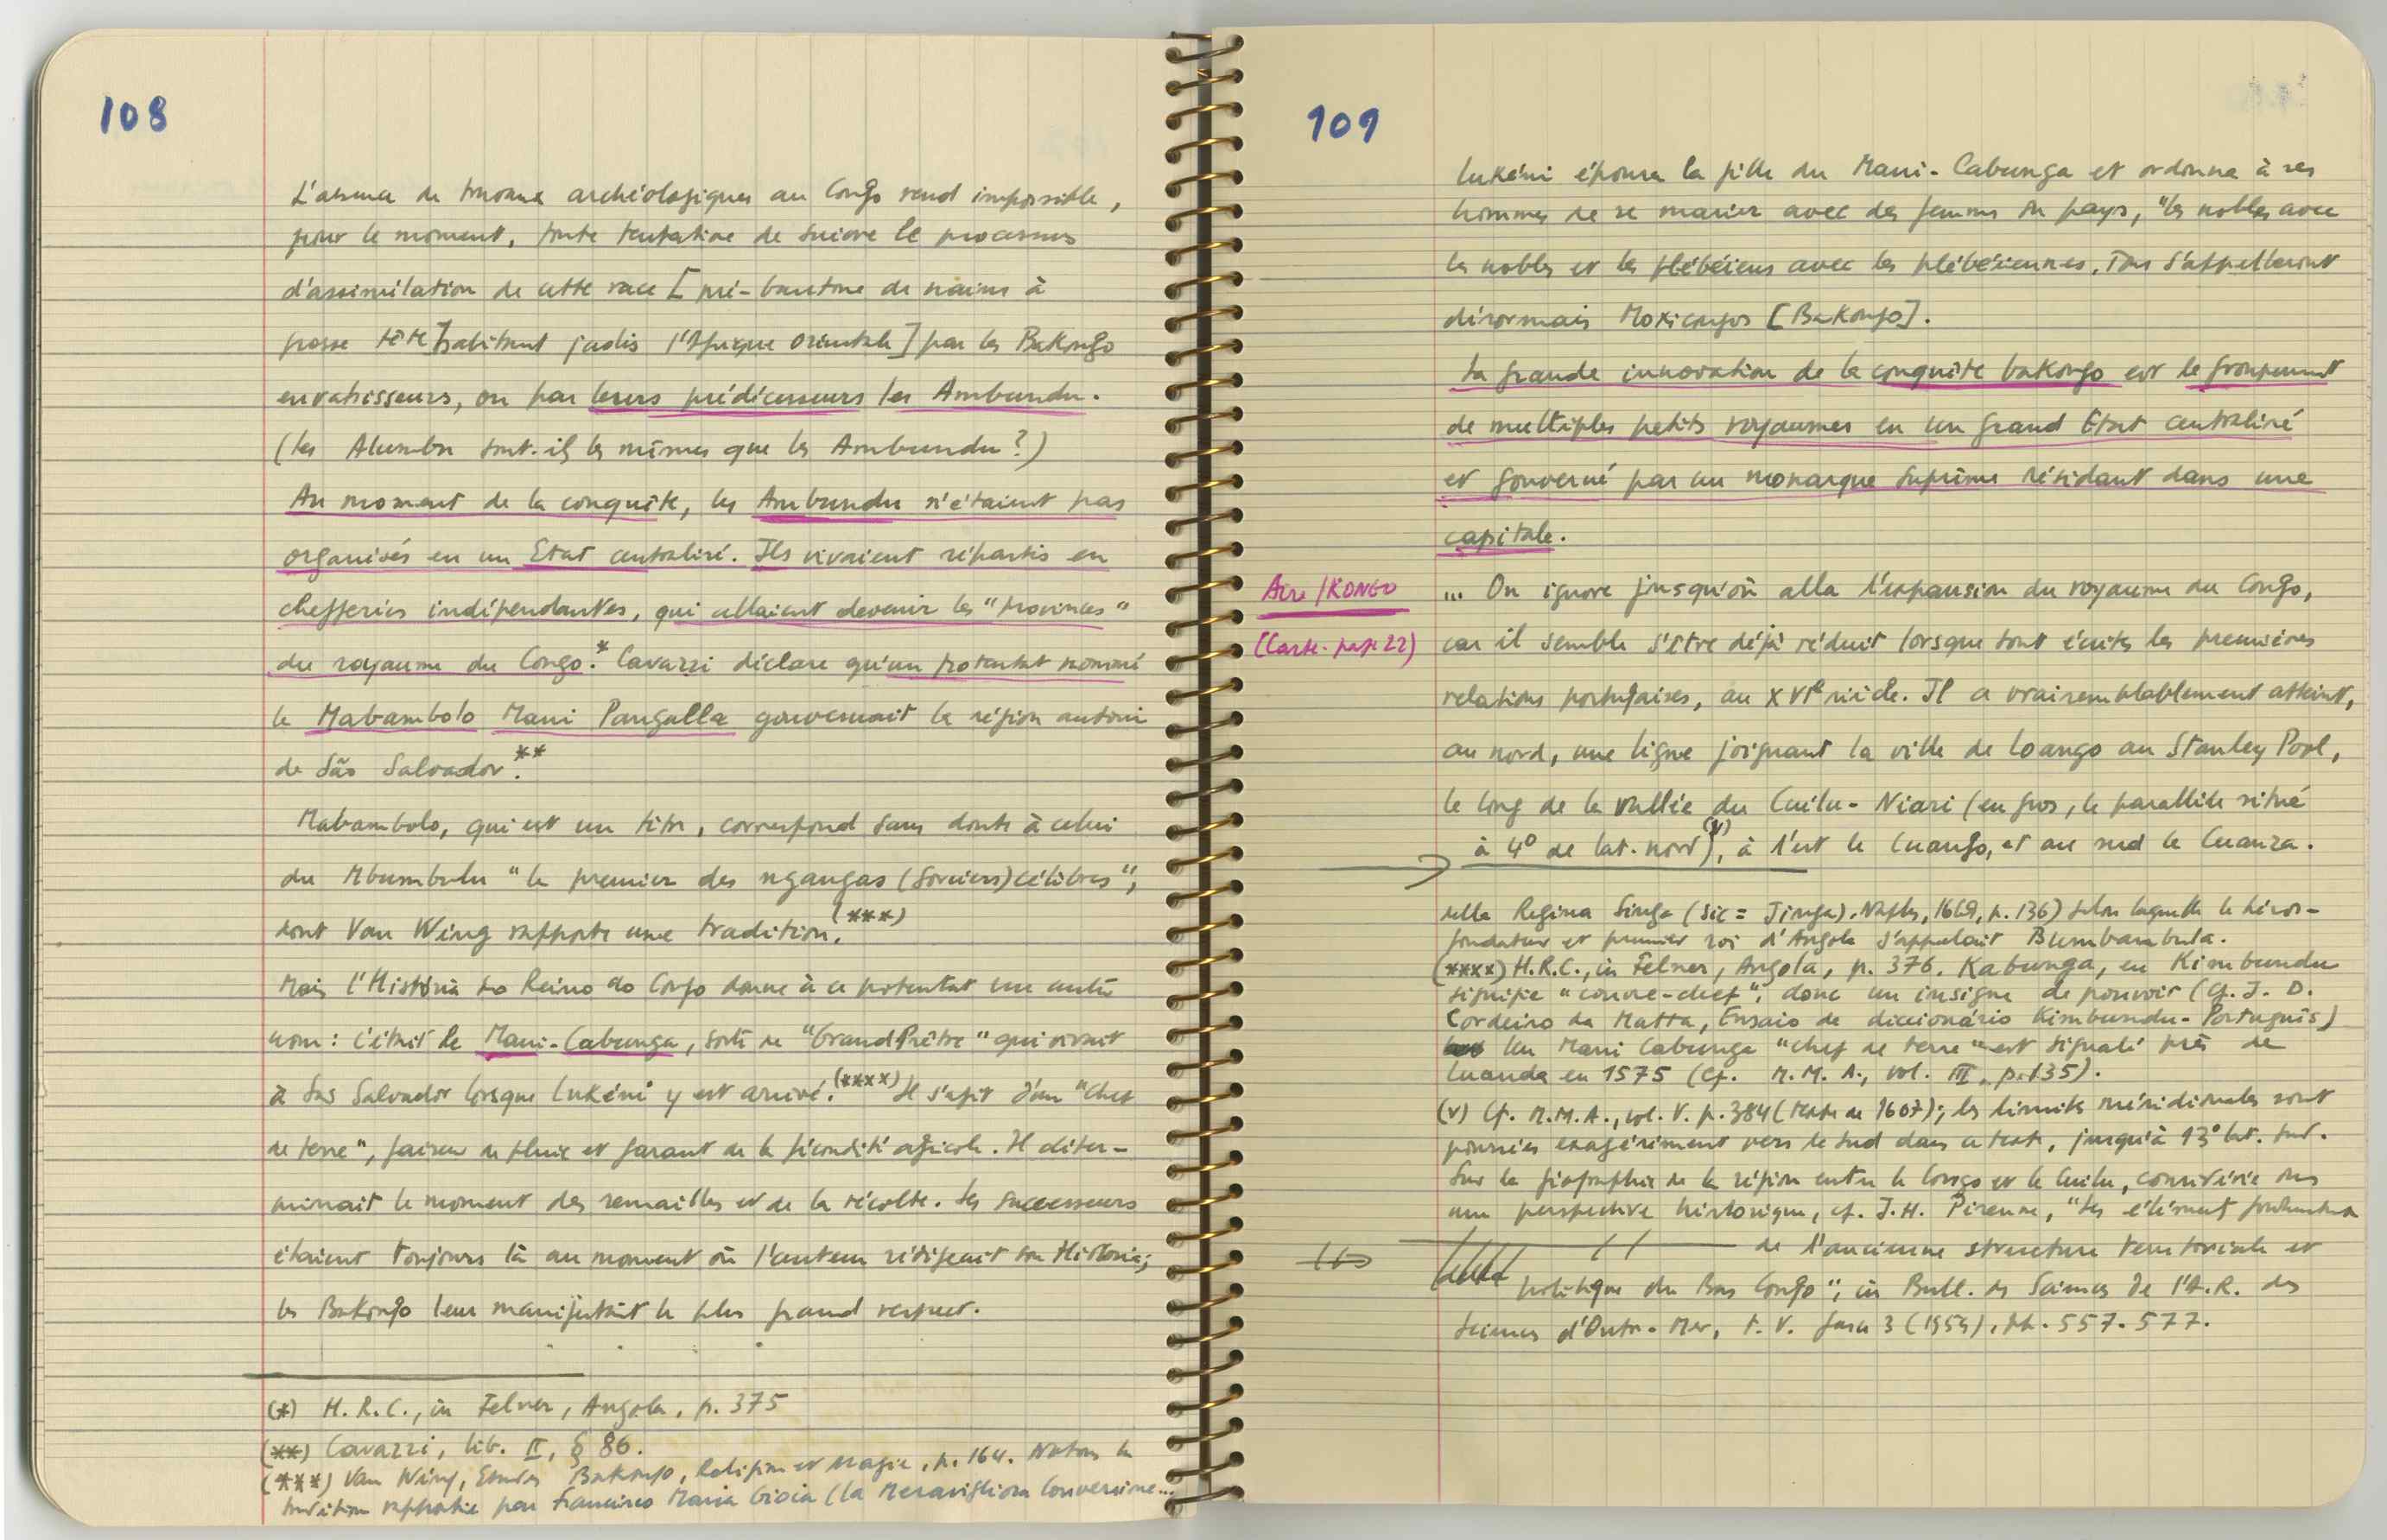 108
L'absence de travaux archéologiques au Congo rend impossible,
pour le moment, toute tentative de suivre le processus
d'assimilation de cette race [pré-bantoue de nains à
grosse tête] habitant jadis l'Afrique orientale] par les Bakongo
envahisseurs, ou par leurs prédécesseurs les Ambundu.
(les Alumbu sont-ils les mêmes que les Ambundu ?)
Au moment de la conquête, les Ambundu n'étaient pas
organisés en un Etat centralisé. Ils vivaient répartis en
chefferies indépendantes, qui allaient devenir les "provinces"
du royaume du Congo.* Cavazzi déclare qu'un potentat nommé
le Mabambolo Mani Pangalla gouvernait la région autour
de São Salvador.**
Mabambolo, qui est un titre, correspond sans doute à celui
du Mbumbulu "le premier des ngangas (sorciers) célèbres",
dont Van Wing rapporte une tradition.(***)
Mais l'História do Reino do Congo donne à ce potentat un autre
nom : c'était le Mani-Cabunga, sorte de "Grand Prêtre" qui vivait
à Sao Salvador lorsque Lukéni y est arrivé.(****) Il s'agit d'un "chef
de terre", faiseur de pluie et garant de la fécondité agricole. Il déter-
minait le moment des semailles et de la récolte. Ses successeurs
étaient toujours là au moment où l'auteur rédigeait son Historia;
les Bakongo leur manifestait le plus grand respect.
(*) H.R.C., in Felner, Angola, p. 375
(**) Cavazzi, lib. II, § 86.
(***) Van Wing, Etudes Bakongo, Religion et Magie, p. 164. Notons la
tradition rapportée par Francisco Maria Gioia (la Meravigliosa Conversione...
109
Lukéni épousa la fille du Mani-Cabunga et ordonna à ses
hommes de se marier avec des femmes du pays, "les nobles avec
les nobles et les plébéiens avec les plébéiennes. Tous s'appelleront
désormais Moxicongos [Bakongo].
La grande innovation de la conquête bakongo est le groupement
de multiples petits royaumes en un grand Etat centralisé
et gouverné par un monarque suprême résidant dans une
capitale.
Aire/KONGO
(Carte. page 22)
... On ignore jusqu'où alla l'expansion du royaume du Congo,
car il semble s'être déjà réduit lorsque sont écrites les premières
relations portugaises, au XVIe siècle. Il a vraisemblablement atteint,
au nord, une ligne joignant la ville de Loango au Stanley Pool,
le long de la vallée du Cuilu-Niari (en gros, le parallèle situé
à 4° de lat. nord)(v), à l'est le Cuango, et au sud le Cuanza.
della Regina Singa (sic = Jinga). Naples, 1669, p. 136) selon laquelle le héros-
fondateur et premier roi d'Angola s'appelait Bumbambula.
(****) H.R.C., in Felner, Angola, p. 376. Kabunga, en Kimbundu
signifie "couvre-chef", donc un insigne de pouvoir (Cf. J. D.
Cordeiro da Matta, Ensaio de diccionário Kimbundu-Português)
Un Mani Cabunga "chef de terre" est signalé près de
Luanda en 1575 (Cf. M.M.A., vol. III, p. 135).
(v) Cf. M.M.A., vol. V. p. 384 (texte de 1607); les limites méridionales sont
poussées exagérément vers le sud dans ce texte, jusqu'à 13° lat. sud.
Sur la géographie de la région entre le Congo et le Cuilu, considérée dans
une perspective historique, cf. J.H. Pirenne, "Les éléments fondamentaux
de l'ancienne structure territoriale et
politique du Bas Congo", in Bull. des Séances de l'A.R. des
Sciences d'Outre-Mer, t. V. fasc 3 (1959), pp. 557-577.